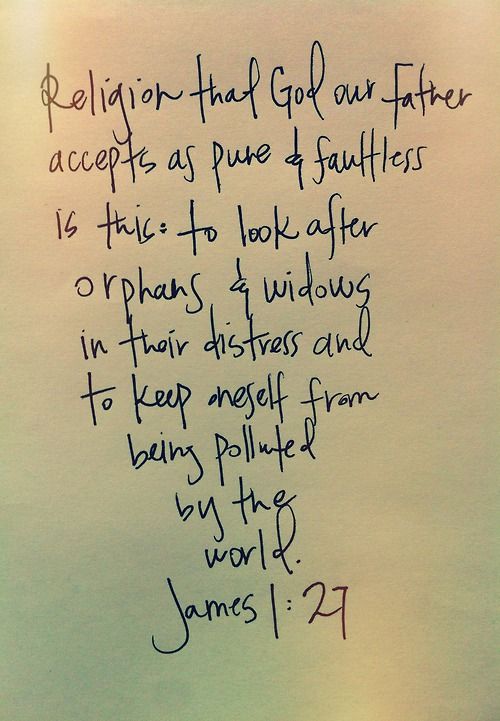 Religion that God our Father
accepts as pure & faultless
is this: to look after
orphans & widows
in their distress and
to keep oneself from
being polluted
by the
world.
James 1:27